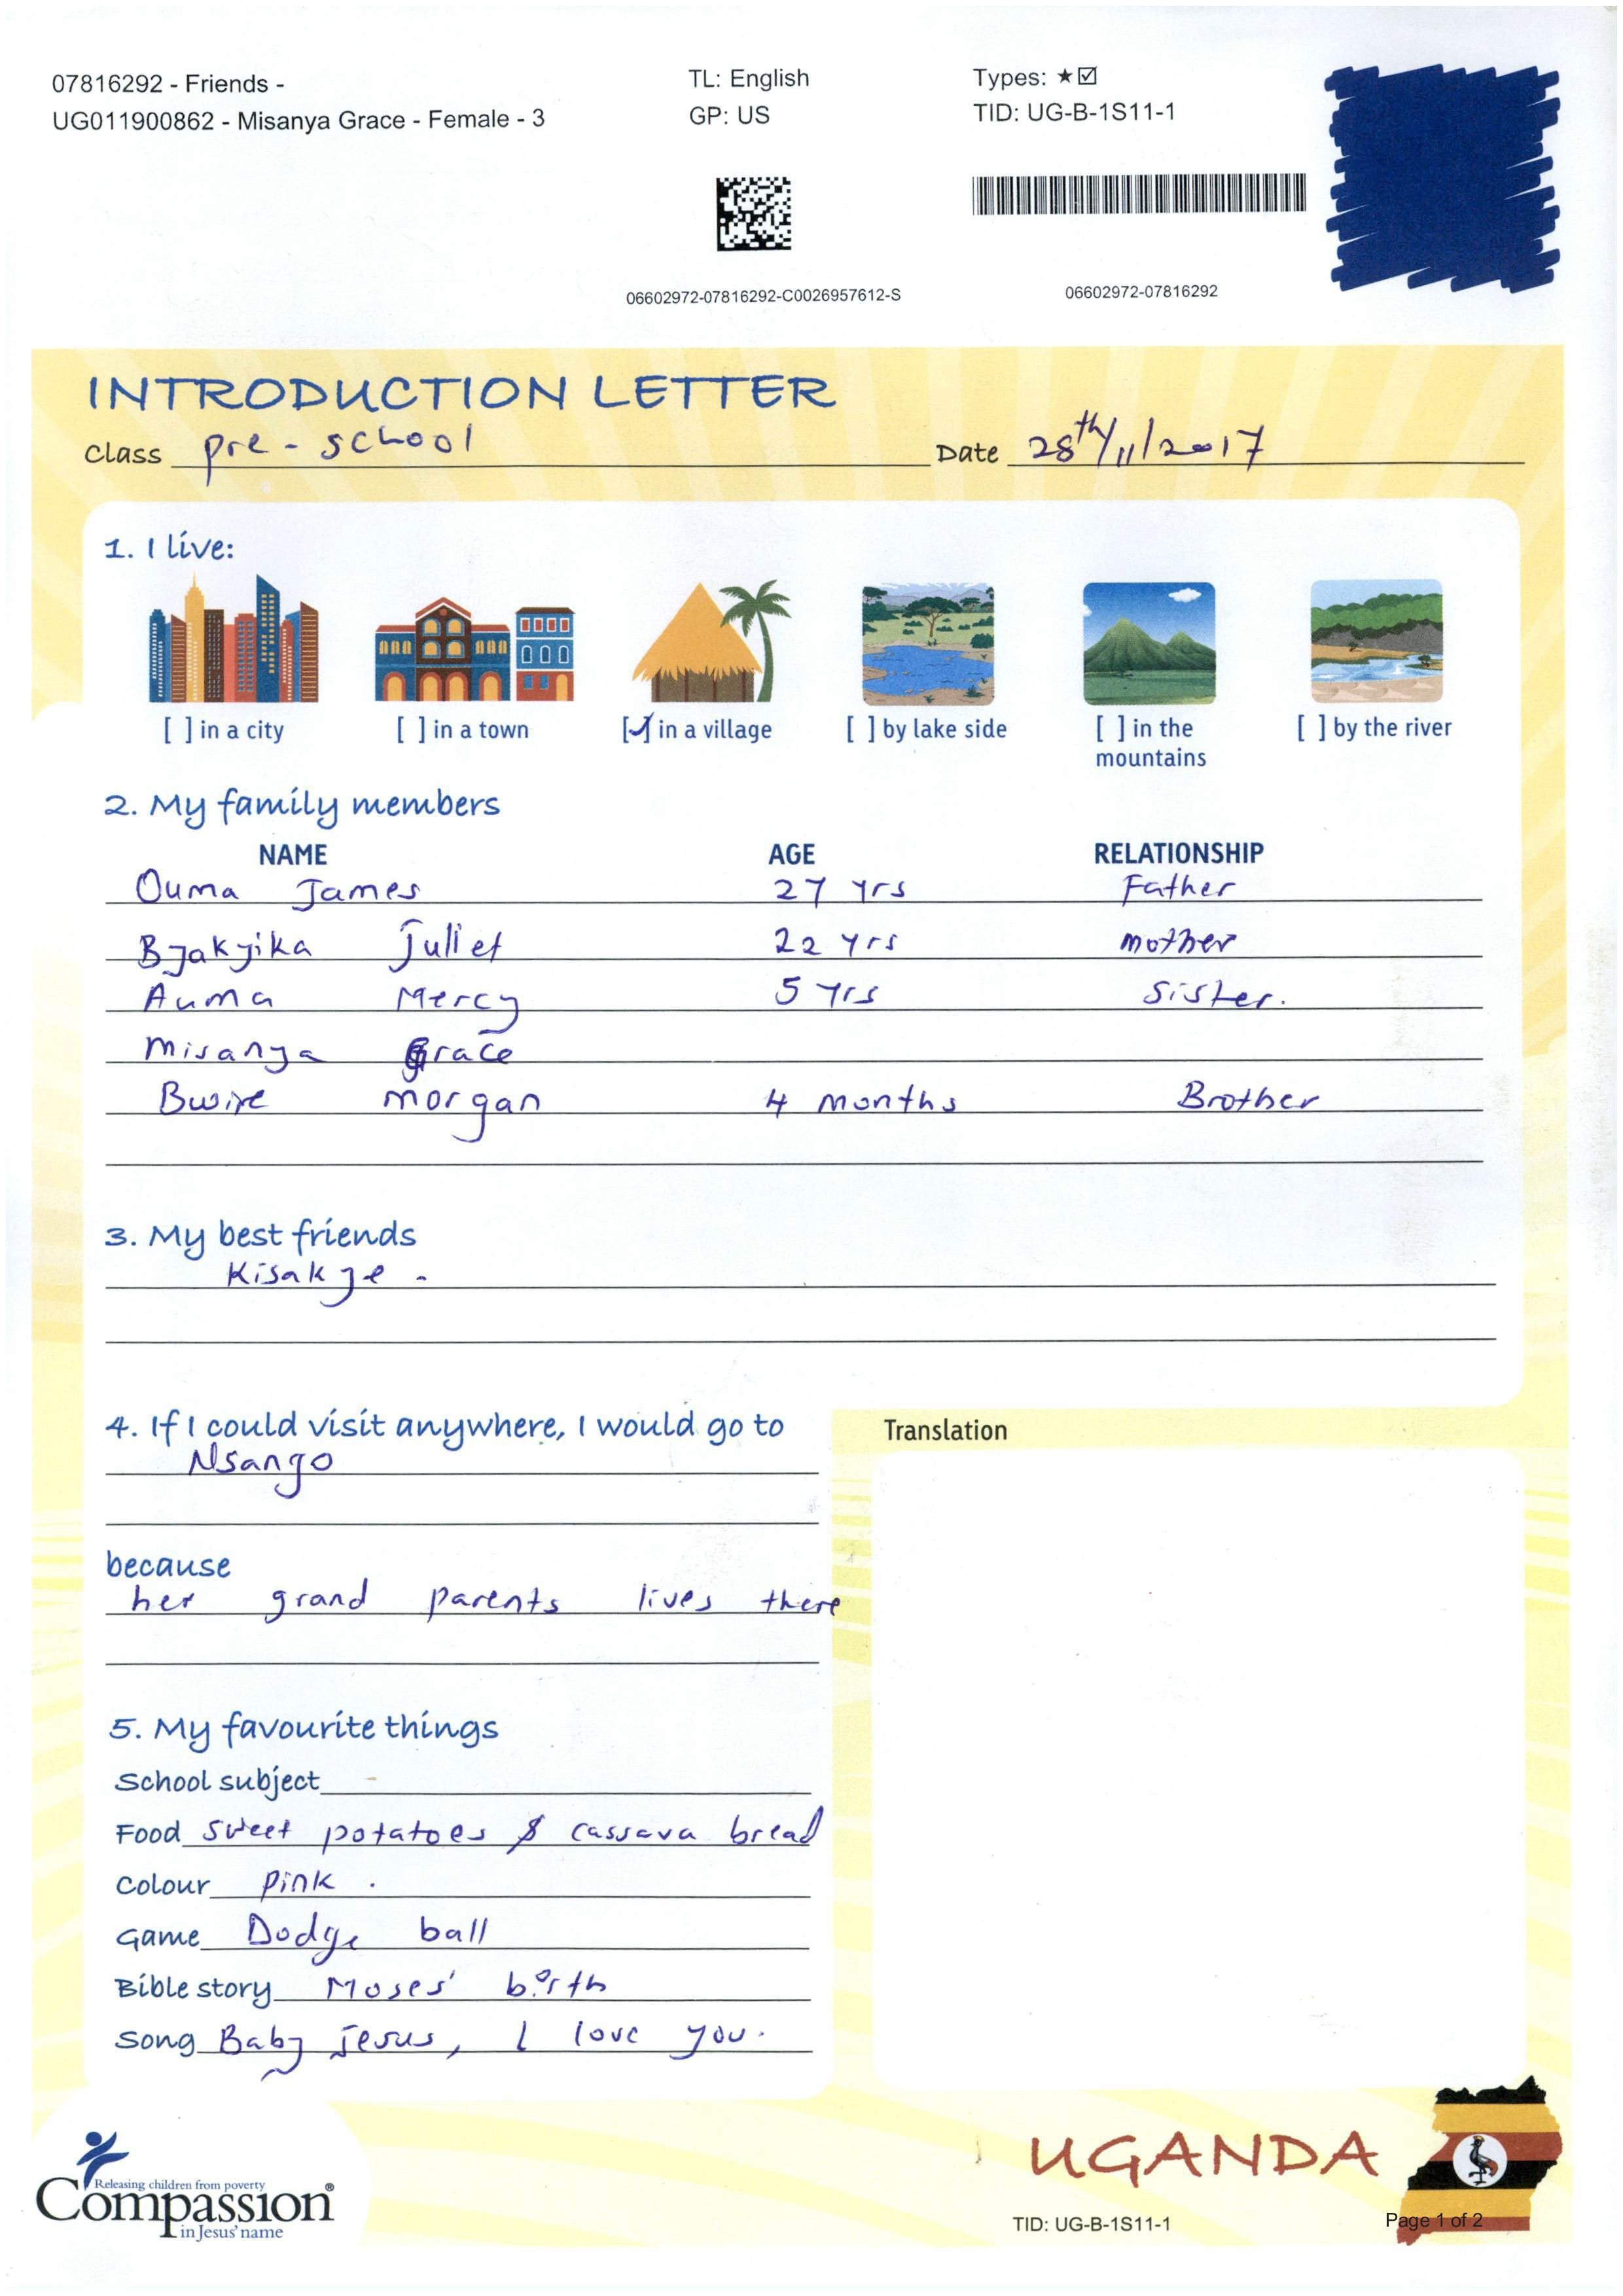 07816292 - Friends -
UG011900862 - Misanya Grace - Female - 3
TL: English
GP: US
Types: ★☑
TID: UG-B-1S11-1
06602972-07816292-C0026957612-S
06602972-07816292
INTRODUCTION LETTER
Class pre-school
Date 28th/11/2017
1. I live:
[ ] in a city [ ] in a town [✓] in a village [ ] by lake side [ ] in the mountains [ ] by the river
2. My family members
NAME AGE RELATIONSHIP
Ouma James 27 yrs Father
Byakyika Juliet 22 yrs mother
Auma Mercy 5 yrs Sister.
Misanya Grace
Bwire morgan 4 months Brother
3. My best friends
Kisakye -
4. If I could visit anywhere, I would go to
Nsango
because
her grand parents lives there
Translation
5. My favourite things
School subject -
Food sweet potatoes & cassava bread
Colour pink .
Game Dodge ball
Bible story Moses' birth
Song Baby Jesus, I love you.
Releasing children from poverty
Compassion®
in Jesus' name
UGANDA
TID: UG-B-1S11-1
Page 1 of 2